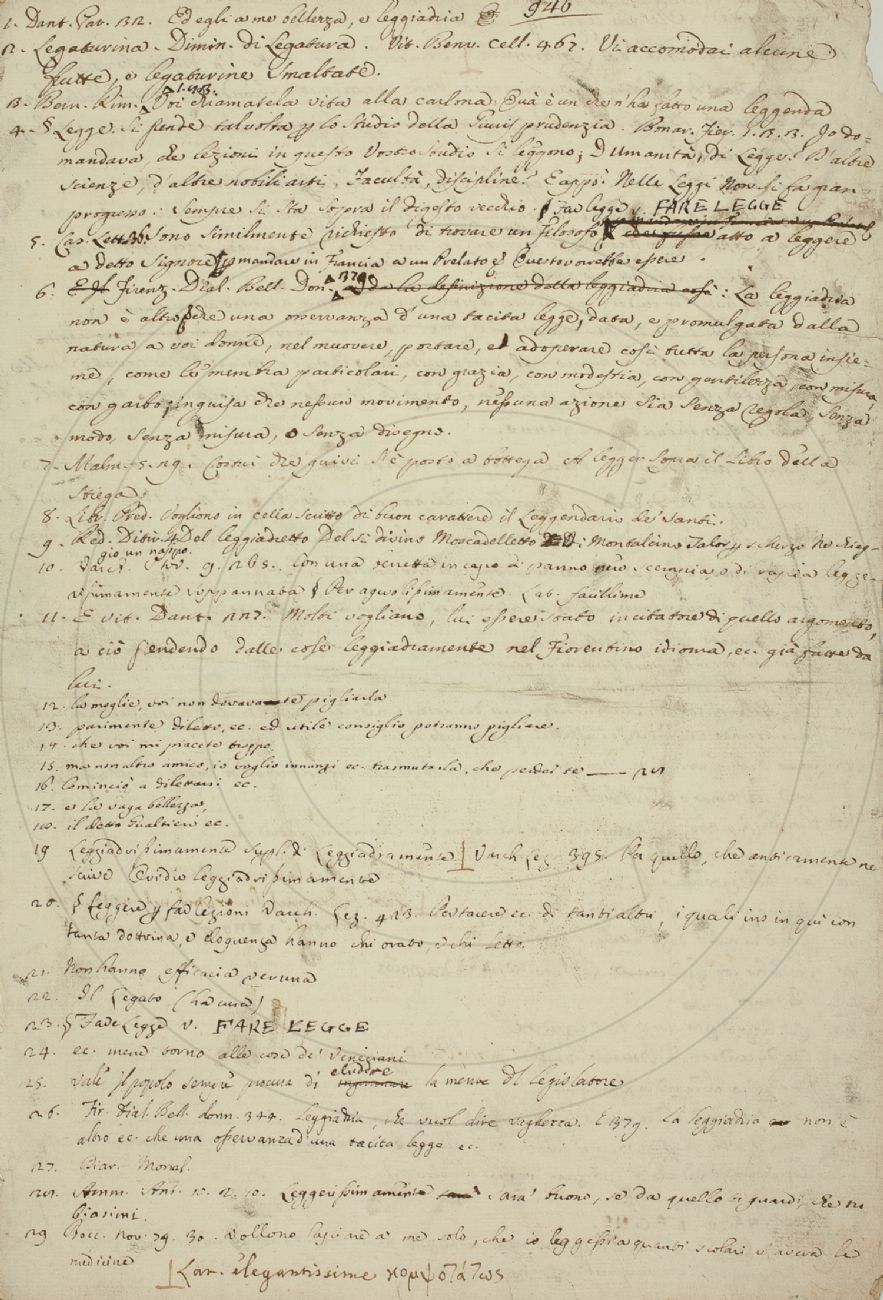 940
1. Dant. Par. 32. Ed egli a me bellezza, e leggiadria
2. Legaturina. Dimin. di Legatura. Vit. Benv. Cell. 467. Vi accomodai alcune
frutte, e legaturine smaltate.
3. Bern. Rim. Voi chiamatela vita alla carlona: Qua è un che n'ha fatto una leggenda
4. § Legge. Si prende talvolta p lo studio della Giurisprudenzia. Bonar. Fier. 1. 3. 3. Io do-
mandava che lezioni in questo vostro studio si leggono; D'Umanità, di Legge? D'altre
scienze, d'altre nobili arti, Facultà, discipline? E appò: Nelle Leggi non si fa gran
progresso: sempre si sta sopra il digesto vecchio. § Far legge v. FARE LEGGE
5. Car. Lett. Sono similmente richiesto di trovare un filosofo atto a leggere
a detto Signore, p mandare in Francia a un Prelato e Questo vorrebbe essere.
6. Firenz. Dial. Bell. Don. 379 la definizione della leggiadria così: La leggiadria
non è altro che una osservanza d'una tacita legge, data, e promulgata dalla
natura a voi donne, nel muovere, portare, e adoperare così tutta la persona insie-
me, come le membra particolari, con grazia, con modestia, con gentilezza, con misura,
con garbo, inguisa che nessun movimento, nessuna azione sia senza regola, senza
modo, senza misura, o senza disegno.
7. Malm. 5. 19. Costui che quivi s'è posto a bottega A legger sopra il Libro della
strega.
8. Libr. Pred. Vogliono in cella scritto di buon carattere il Leggendario de' Santi.
9. Red. Ditir. 4. Del leggiadretto Del sì divino Moscadelletto Di Montalcino Talor p scherzo Ne chieg-
gio un nappo.
10. Varch. Stor. 9. 265. Con una berretta in capo di panno nero o di rascia legge-
rissimamente soppannata § Per agevolissimamente Lat. facillime
11. E Vit. Dant. 227. Molti vogliano, lui essere stato incitatore di quello argomento,
a ciò prendendo dalle cose leggiadramente nel Fiorentino idioma, ec. già fatte da
lui.
12. la moglie, voi non dovavate pigliarla
13. parimente diletto, ec. ed utile consiglio potranno pigliare.
14. che voi mi piacete troppo.
15. ma un altro amico, io voglio innanzi ec. trasmutarla, che perder te
16. Cominciò a dilettarsi ec.
17. e la vaga bellezza,
18. il detto Gualtieri ec.
19 Leggiadrissimamente Superl. di Leggiadramente Varch. Lez. 395. Per quello, che anticamente ne
scrive Ovidio leggiadrissimamente
20. § Leggere p far lezioni Varch. Lez. 423. Per tacere ec. di tanti altri, i quali ino in qui con
tanta dottrina, e eloquenza hanno chi orato, e chi letto.
21. Non hanno efficacia veruna
22. Il Legato (ha cura)
23. § Fare Legge v. FARE LEGGE
24. ec. mené torno alle cose de' Veneziani
25. vale il popolo sempre procura di eludere la mente del legislatore
26. Fir. Dial. Bell. donn. 344. Leggiadria, che vuol dire vaghezza. E 379. La leggiadria non è
altro ec. che una osservanza d'una tacita legge ec.
27. Mor.
28. Amm. Ant. Leggerissimamente sarà buono, se da quello ti guardi, che tu
biasimi.
29 Bocc. Nov. 79. 30. Vollono lasciare a me solo, che io leggessi a quanti scolari v'aveva le
medicine
Lat. elegantissime κομψοτάτως